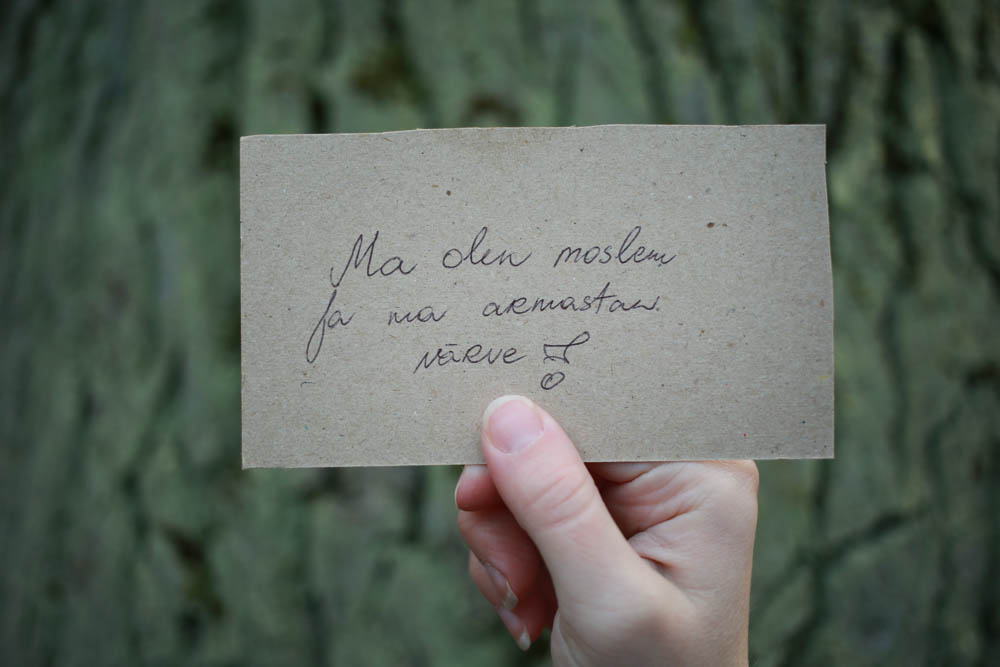 Ma olen moslem
ja ma armastan
värve!